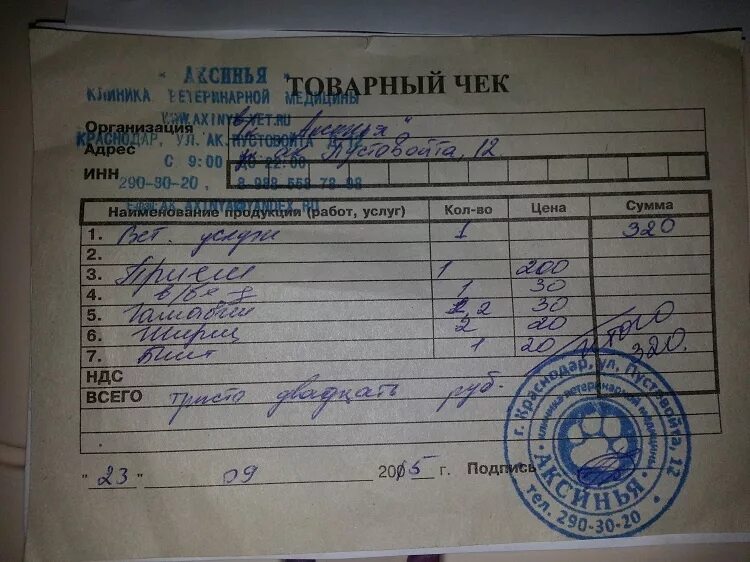 " АКСИНЬЯ "
ТОВАРНЫЙ ЧЕК
КЛИНИКА ВЕТЕРИНАРНОЙ МЕДИЦИНЫ
WWW.AXINYAVET.RU
Организация в/к "Аксинья"
КРАСНОДАР, УЛ. АК. ПУСТОВОЙТА
Адрес ул. ак. Пустовойта, 12
С 9:00 ДО 22:00
ИНН
290-30-20,
Наименование продукции (работ, услуг) Кол-во Цена Сумма
1. Вет. услуги 1 320
2.
3. Прием 1 200
4. 1 30
5. Гамавит 2,2 30
6. Шприц 2 20
7. Бинт 1 20 Итого
320.
НДС
ВСЕГО триста двадцать руб.
"23" 09 2015 г. Подпись
г. Краснодар, ул. Пустовойта, 12
клиника ветеринарной медицины
АКСИНЬЯ
тел. 290-30-20